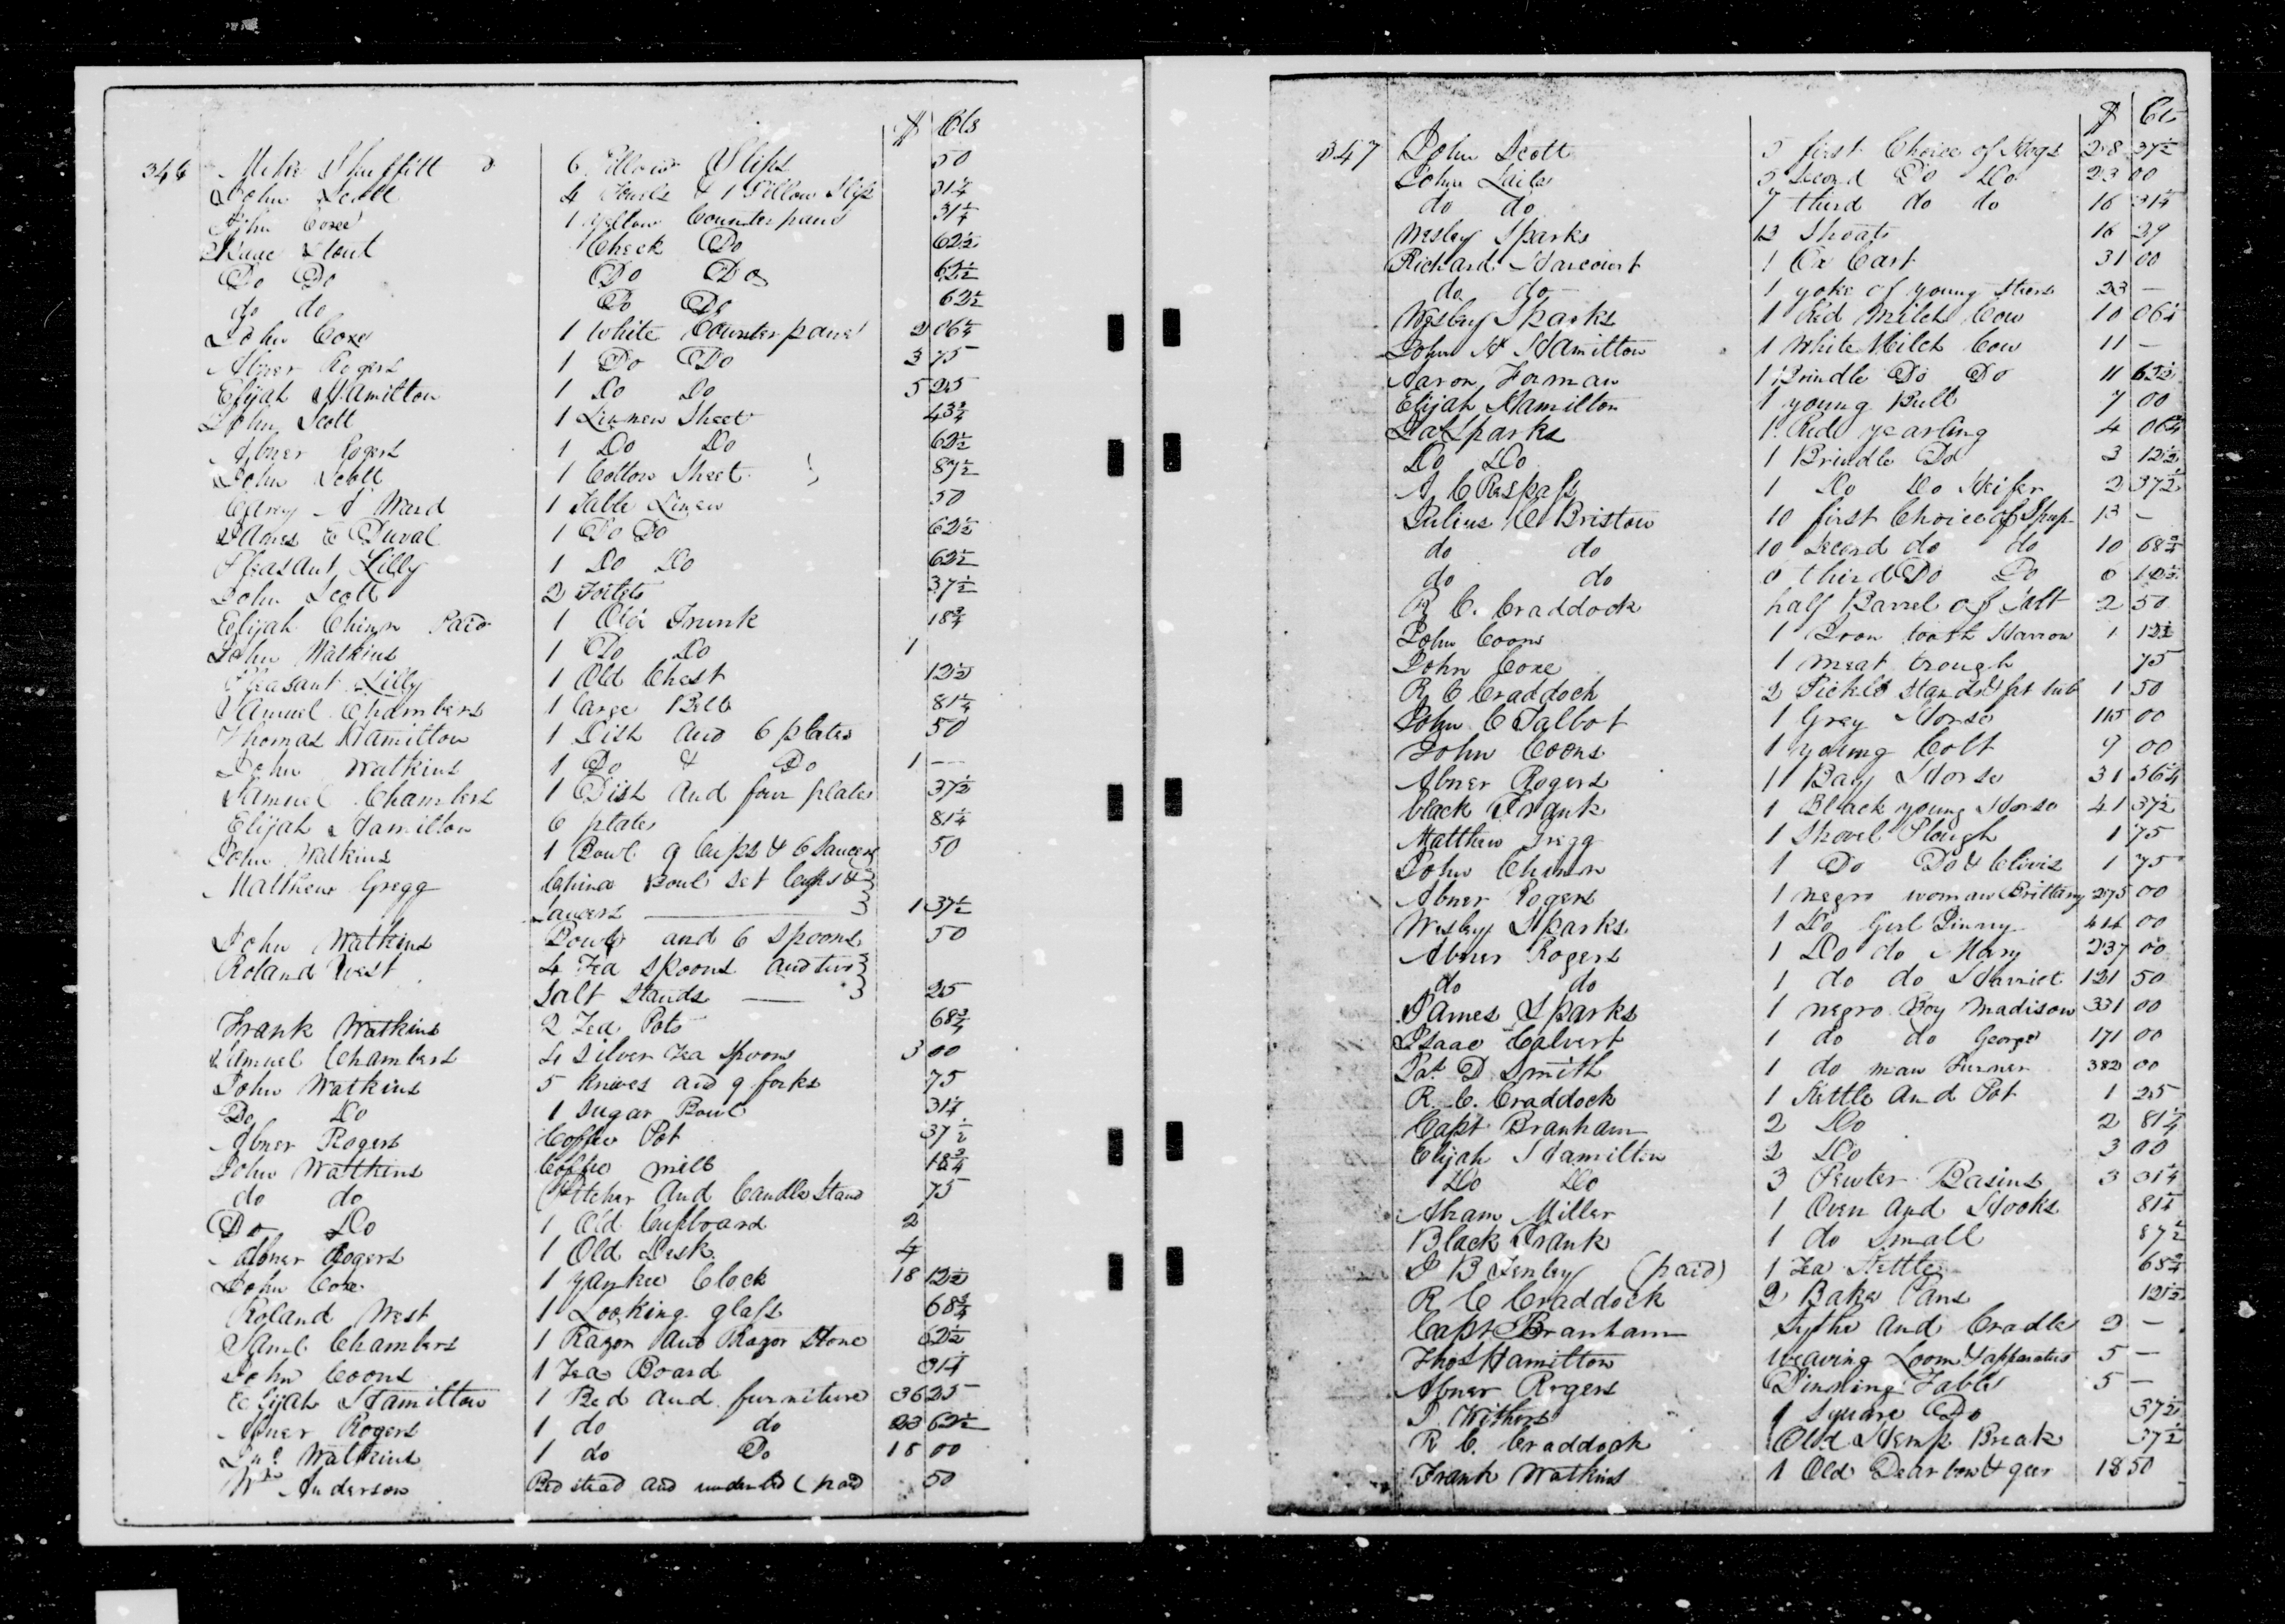 $ Cts
346 Mike Shuffitt 6 Pillow Slips 50
John Scott 4 Towels & 1 Pillow Slip 31 1/4
John Coxe 1 yellow Counterpane 31 1/4
Isaac Stout Check Do 62 1/2
Do Do Do Do 62 1/2
do do Do Do 62 1/2
John Coxe 1 White Counterpane 2 06 1/4
Abner Rogers 1 Do Do 3 75
Elijah Hamilton 1 Do Do 5 25
John Scott 1 Linnen Sheet 43 3/4
Abner Rogers 1 Do Do 62 1/2
John Scott 1 Cotton Sheet 87 1/2
Carey A Ward 1 Table Linen 50
James E Duval 1 Do Do 62 1/2
Pleasant Lilly 1 Do Do 62 1/2
John Scott 2 37 1/2
Elijah Chinn Paid 1 Old Trunk 18 3/4
John Watkins 1 Do Do 1
Pleasant Lilly 1 Old Chest 12 1/2
Samuel Chambers 1 large Bell 81 1/4
Thomas Hamilton 1 Dish and 6 plates 50
John Watkins 1 Do & Do 1 —
Samuel Chambers 1 Dish and four plates 37 1/2
Elijah Hamilton 6 plates 81 1/4
John Watkins 1 Bowl 9 Cups & 6 Saucers 50
Matthew Gregg China Bowl Set Cups &
Saucers — 1 37 1/2
John Watkins Bowl and 6 Spoons 50
Roland West 4 Tea spoons and two
Salt Stands — 25
Frank Watkins 2 Tea Pots 68 3/4
Samuel Chambers 4 Silver Tea Spoons 3 00
John Watkins 5 knives and 9 forks 75
Do Do 1 Sugar Bowl 31 1/4
Abner Rogers Coffee Pot 37 1/2
John Watkins Coffee mill 18 3/4
do do Pitcher and Candle Stand 75
Do Do 1 Old Cupboard 2
Abner Rogers 1 Old Desk 4
John Coxe 1 Yankee Clock 18 12 1/2
Roland West 1 Looking glass 68 3/4
Saml Chambers 1 Razor and Razor Stone 62 1/2
John Coons 1 Tea Board 31 1/4
Elijah Hamilton 1 Bed and furniture 36 25
Abner Rogers 1 do do 23 62 1/2
Jno Watkins 1 do Do 18 00
Wm Anderson Bed stead and underbed (paid 50
$ Cts
347 John Scott 5 first Choice of Hogs 28 37 1/2
John Laile 5 Second Do Do 23 00
do do 7 third do do 16 31 1/4
Wesley Sparks 12 Shoats 16 29
Richard Harcourt 1 Ox Cart 31 00
do do 1 yoke of young steers 23 —
Wesley Sparks 1 Red Milch Cow 10 06 1/4
John H Hamilton 1 White Milch Cow 11 —
Aaron Forman 1 Brindle Do Do 11 62 1/2
Elijah Hamilton 1 young Bull 7 00
Sparks 1 Red yearling 4 06 1/4
Do Do 1 Brindle Do 3 12 1/2
A C Respass 1 Do Do Heifer 2 37 1/2
Julius C Bristow 10 first Choice of Sheep 13 —
do do 10 Second do do 10 68 3/4
do do 6 third Do Do 6 12 1/2
R C. Craddock half Barrel of Salt 2 50
John Coons 1 Iron tooth Harrow 1 12 1/2
John Coxe 1 meat trough 75
R C Craddock 2 Pickle Stands & tub 1 50
John C Talbot 1 Grey Horse 115 00
John Coons 1 young Colt 9 00
Abner Rogers 1 Bay Horse 31 36 1/4
black Frank 1 Black young Horse 41 37 1/2
Matthew Gregg 1 Shovel Plough 1 75
John Chinn 1 Do Do & Clivis 1 75
Abner Rogers 1 negro woman Brittany 275 00
Wesley Sparks 1 Do Girl Jinny 414 00
Abner Rogers 1 Do do Mary 237 00
do do 1 do do Harriet 121 50
James Sparks 1 negro Boy Madison 331 00
Isaac Calvert 1 do do George 171 00
Pat. D Smith 1 do man Turner 382 00
R. C. Craddock 1 Kettle and Pot 1 25
Capt Branham 2 Do 2 81 1/4
Elijah Hamilton 2 Do 3 00
Do Do 3 Pewter Basins 3 31 1/4
Abram Miller 1 Oven and Hooks 81 1/4
Black Frank 1 do Small 87 1/2
J B Tenley (paid) 1 Tea Kettle 68 3/4
R C Craddock 2 Bake Pans 12 1/2
Capt Branham Sythe and Cradle 2 —
Thos Hamilton Weaving Loom & apparatus 5 —
Abner Rogers Dinning Table 5 —
J. Withers 1 Square Do 37 1/2
R C. Craddock Old Hemp Break 37 1/2
Frank Watkins 1 Old Dearborn & geer 18 50